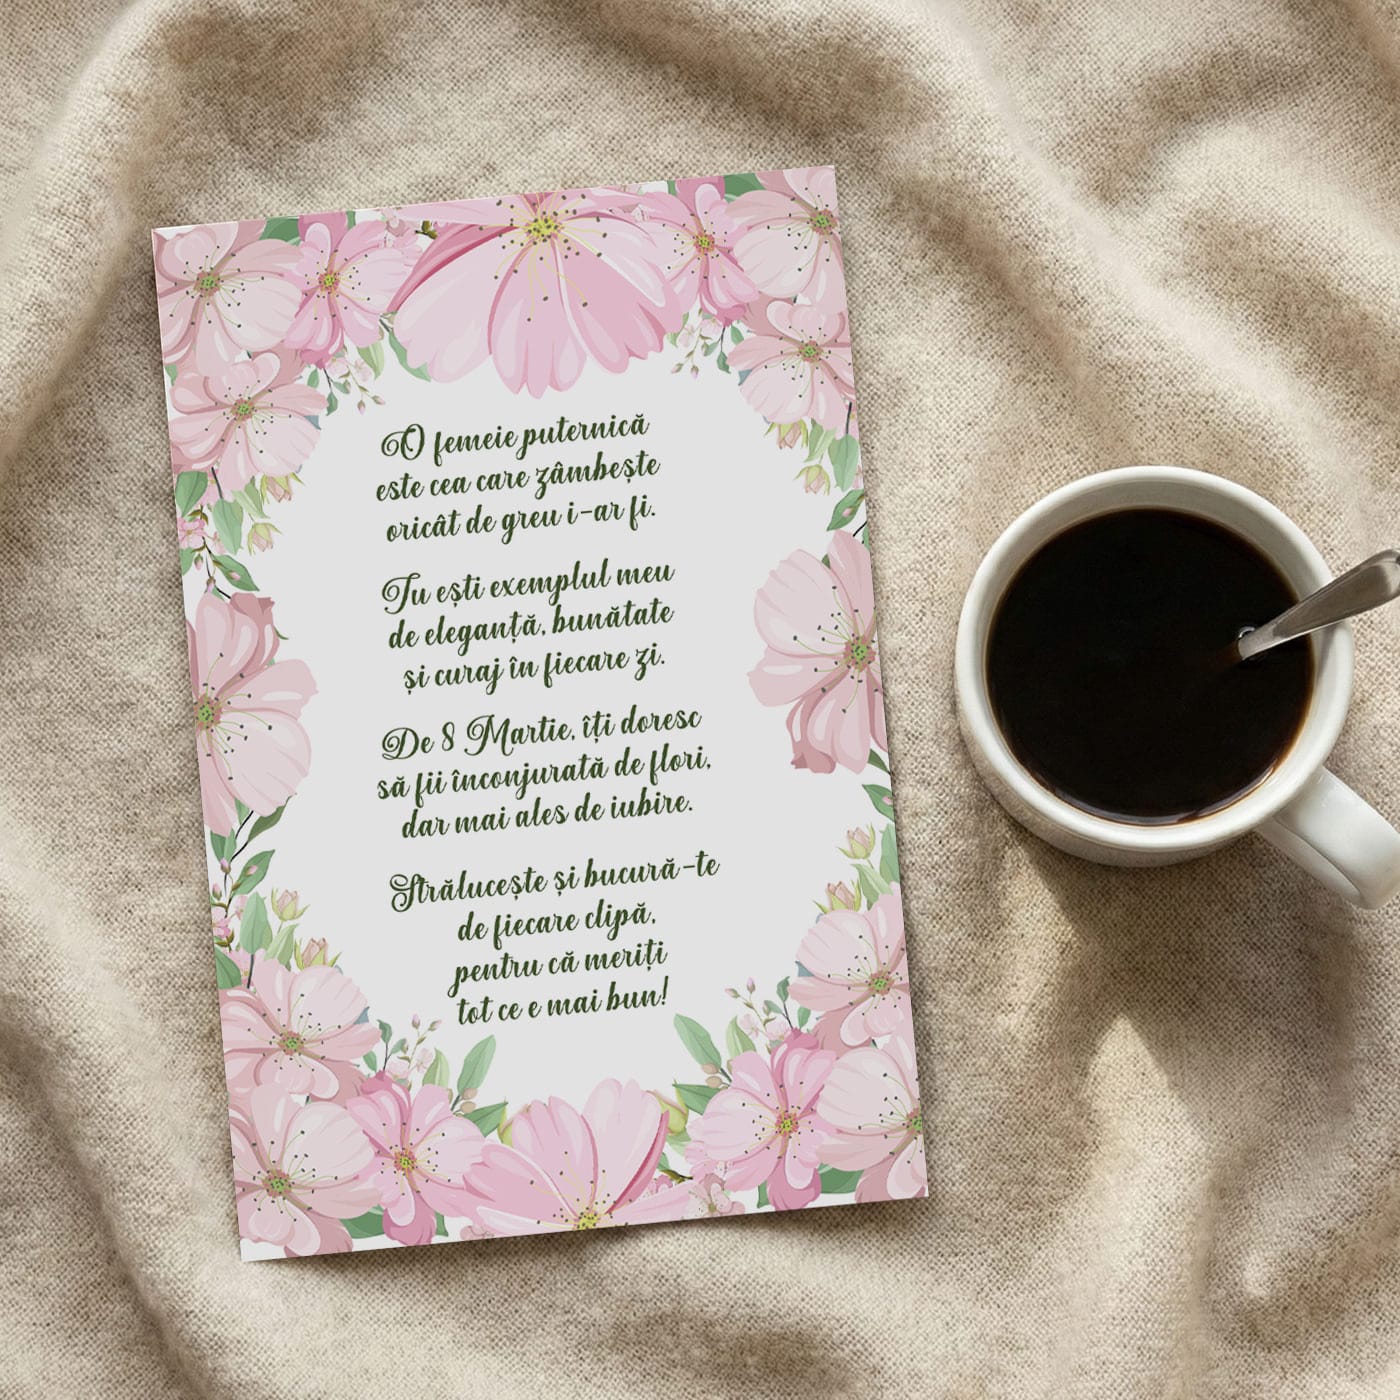 O femeie puternică
este cea care zâmbește
oricât de greu i-ar fi.
Tu ești exemplul meu
de eleganță, bunătate
și curaj în fiecare zi.
De 8 Martie, îți doresc
să fii înconjurată de flori,
dar mai ales de iubire.
Strălucește și bucură-te
de fiecare clipă,
pentru că meriți
tot ce e mai bun!